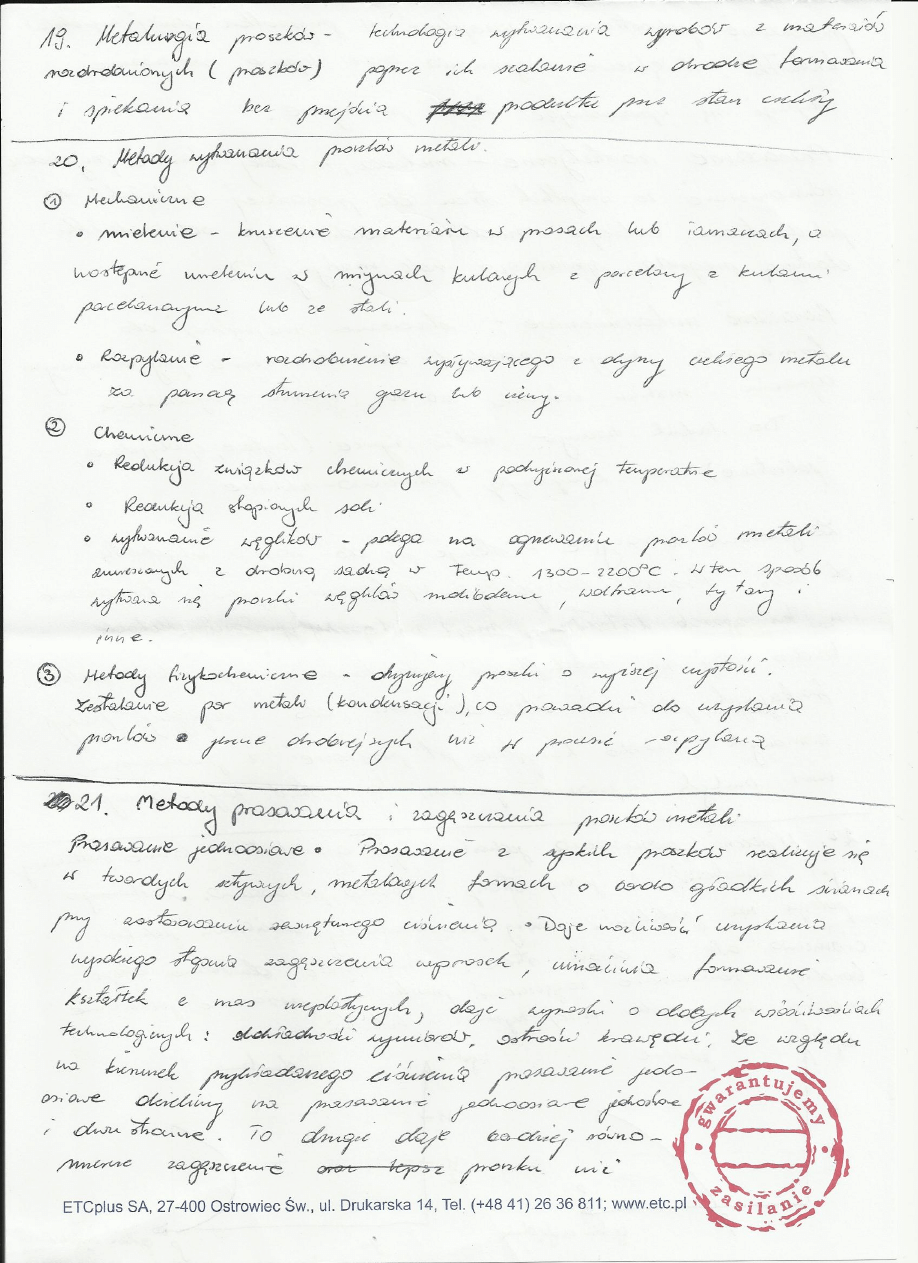 19. Metalurgia proszków - technologia wytwarzania wyrobów z materiałów
rozdrobnionych (proszków) poprzez ich scalanie w drodze formowania
i spiekania bez przejścia produktu przez stan ciekły
20. Metody wytwarzania proszków metali.
① Mechaniczne
• mielenie - kruszenie materiału w prasach lub łamaczach, a
następnie mieleniu w młynach kulowych z porcelany z kulami
porcelanowymi lub ze stali.
• Rozpylanie - rozdrobnienie wypływającego z dyszy ciekłego metalu
za pomocą strumienia gazu lub cieczy.
② Chemiczne
• Redukcja związków chemicznych w podwyższonej temperaturze
• Redukcja stopionych soli
• wytwarzanie węglików - polega na ogrzewaniu proszków metali
zmieszanych z drobną sadzą w temp. 1300-2200°C. W ten sposób
wytwarza się proszki węglików molibdenu, wolframu, tytanu i
inne.
③ Metody fizykochemiczne - otrzymujemy proszki o wyższej czystości.
Zestalanie par metali (kondensacji), co prowadzi do uzyskania
proszków jeszcze drobniejszych niż w procesie rozpylania
21. Metody prasowania i zagęszczania proszków metali
Prasowanie jednoosiowe • Prasowanie z sypkich proszków realizuje się
w twardych sztywnych, metalowych formach o bardo gładkich ścianach
przy zastosowaniu zewnętrznego ciśnienia. • Daje możliwość uzyskania
wysokiego stopnia zagęszczenia wyprasek, umożliwia formowanie
kształtek z mas nieplastycznych, daje wypraski o dobrych właściwościach
technologicznych: dokładności wymiarów, ostrości krawędzi. Ze względu
na kierunek przykładanego ciśnienia prasowanie jedno-
osiowe dzielimy na prasowanie jednoosiowe jednostronne
i dwustronne. To drugie daje bardziej równo-
mierne zagęszczenie oraz lepsze proszku niż
gwarantujemy
zasilanie
ETCplus SA, 27-400 Ostrowiec Św., ul. Drukarska 14, Tel. (+48 41) 26 36 811; www.etc.pl